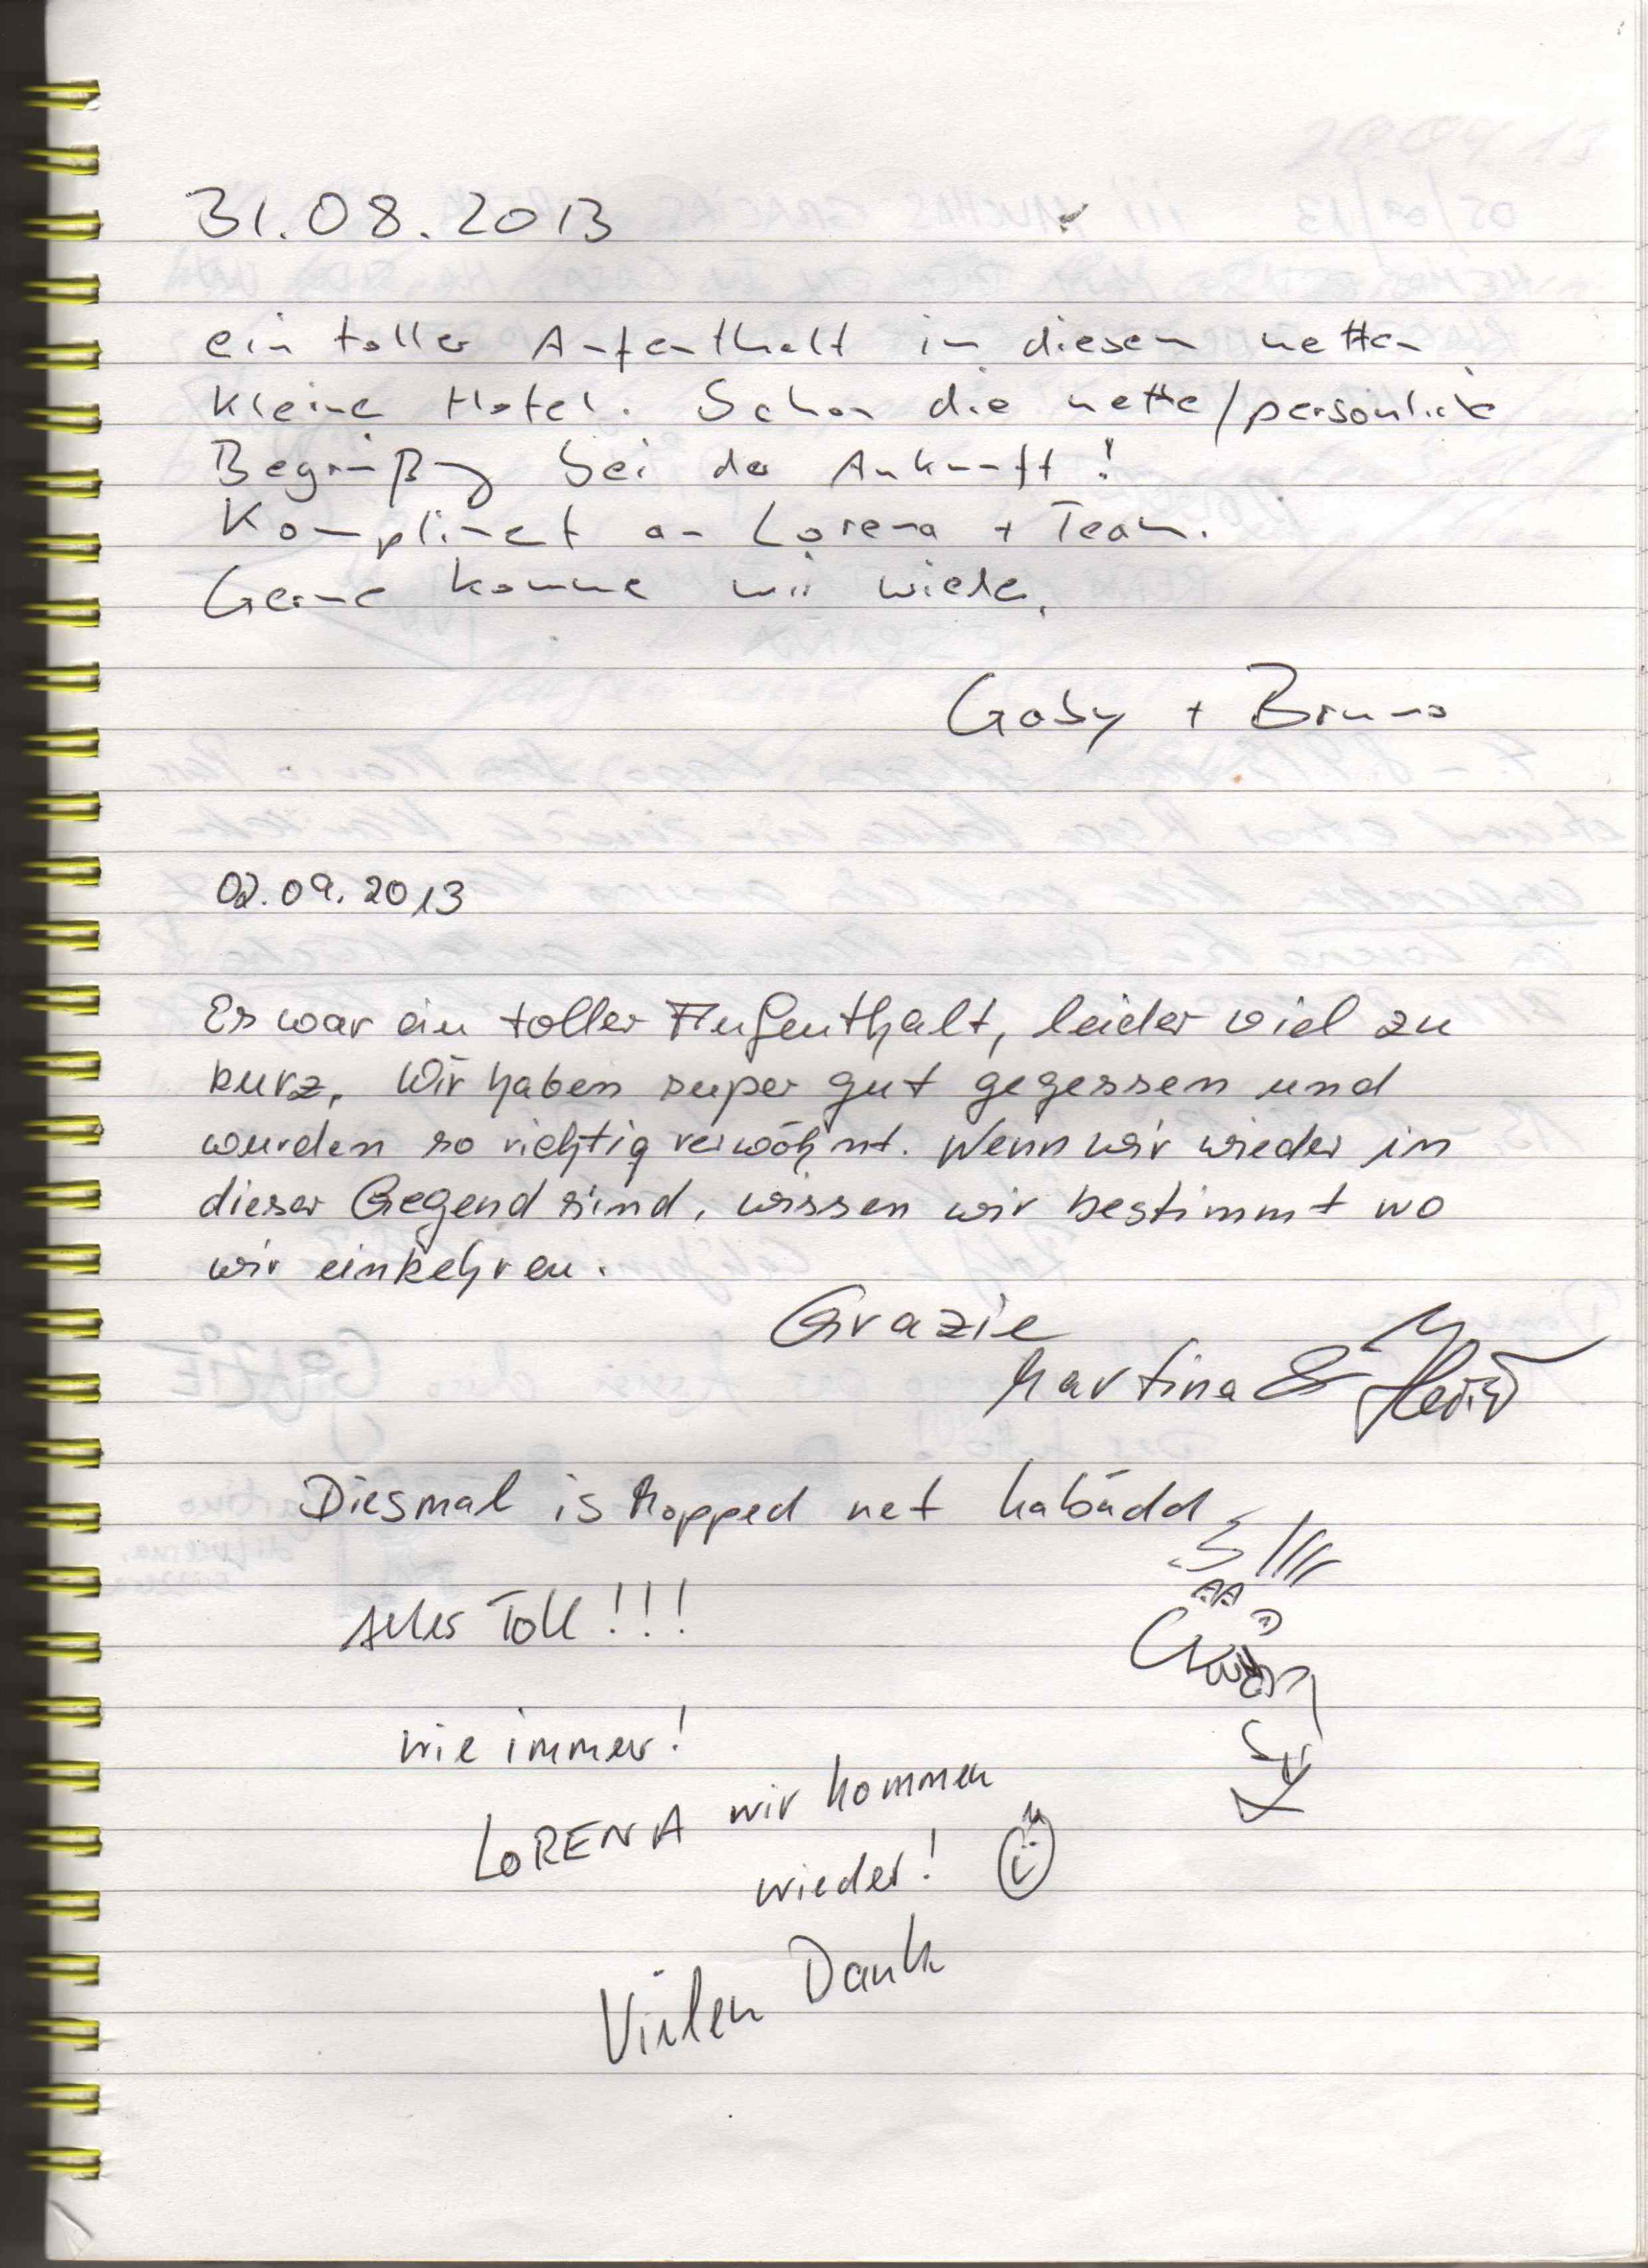 31.08.2013
ein toller Aufenthalt in diesem netten
kleine Hotel. Schon die nette/persönliche
Begrüßung bei der Ankunft!
Kompliment an Lorena + Team.
Gerne komme wir wieder.
Gaby + Bruno
02.09.2013
Es war ein toller Aufenthalt, leider viel zu
kurz. Wir haben super gut gegessen und
wurden so richtig verwöhnt. Wenn wir wieder in
dieser Gegend sind, wissen wir bestimmt wo
wir einkehren.
Grazie
Martina &
Diesmal is Mopped net kabudd
Alles Toll!!!
wie immer!
LORENA wir kommen
wieder!
Vielen Dank